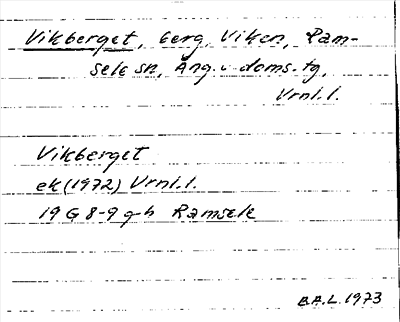 Vikberget, berg, Viken, Ram-
sele sn, Ång. doms. tg,
Vrnl.l.
Vikberget
ek (1972) Vrnl.l.
19 G 8-9 g-h Ramsele
B.A.L. 1973